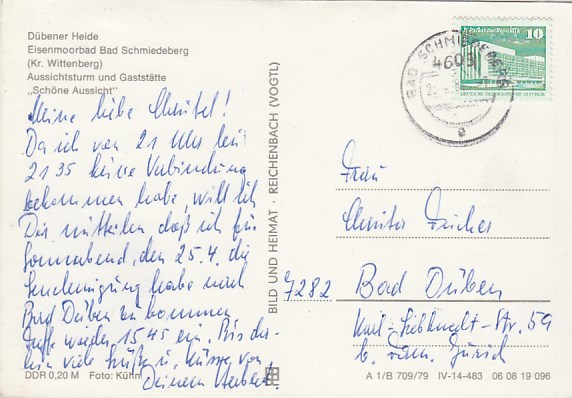 Dübener Heide
Eisenmoorbad Bad Schmiedeberg
(Kr. Wittenberg)
Aussichtsturm und Gaststätte
„Schöne Aussicht"
Meine liebe Christel!
Da ich von 21 Uhr bis
21 35 keine Verbindung
bekommen habe, will ich
Dir mitteilen daß ich für
Sonnabend, den 25.4. die
Genehmigung habe nach
Bad Düben zu kommen
Treffe wieder 15.45 ein. Bis da-
hin viele Grüße u. Küsse von
Deinem Herbert.
DDR 0,20 M Foto: Kühn
BILD UND HEIMAT · REICHENBACH (VOGTL)
BAD SCHMIEDEBERG
4603
e
10
Palast der Republik
DEUTSCHE DEMOKRATISCHE REPUBLIK
Frau
Christa Fischer
7282 Bad Düben
Karl-Liebknecht-Str. 59
b. Fam.
A 1/B 709/79 IV-14-483 06 08 19 096